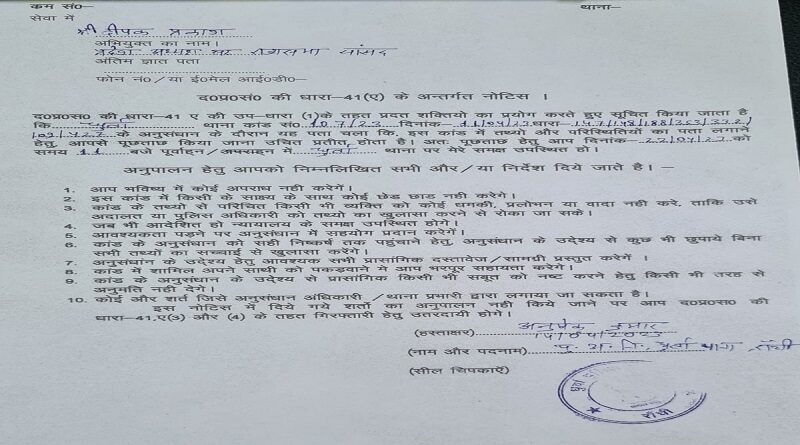 कम सं०-
थाना-
सेवा में
श्री दीपक प्रकाश
अभियुक्त का नाम।
प्रदेश अध्यक्ष सह राज्यसभा सांसद
अंतिम ज्ञात पता
फोन नं०/या ई०मेल आई०डी०-
द०प्र०सं० की धारा-41(ए) के अन्तर्गत नोटिस ।
द०प्र०सं० की धारा-41 ए की उप-धारा (1)के तहत प्रदत शक्तियों का प्रयोग करते हुए सूचित किया जाता है
कि धुर्वा थाना कांड सं० 107/23 दिनांक- 11/04/23 धारा- 147/148/188/353/332/
109/427 के अनुसंधान के दौरान यह पता चला कि, इस कांड में तथ्यो और परिस्थितियों का पता लगाने
हेतु, आपसे पूछताछ किया जाना उचित प्रतीत होता है। अतः पूछताछ हेतु आप दिनांक- 22/04/23 को
समय 11 बजे पूर्वाहन/अपराहन में धुर्वा थाना पर मेरे समक्ष उपस्थित हो।
अनुपालन हेतु आपको निम्नलिखित सभी और/या निर्देश दिये जाते है। –
1. आप भविष्य में कोई अपराध नही करेगें।
2. इस कांड में किसी के साक्ष्य के साथ कोई छेड छाड नही करेगें।
3. कांड के तथ्यो से परिचित किसी भी व्यक्ति को कोई धमकी, प्रलोभन या वादा नही करे, ताकि उसे
अदालत या पुलिस अधिकारी को तथ्यो का खुलासा करने से रोका जा सके।
4. जब भी आदेशित हो न्यायालय के समक्ष उपस्थित होगें।
5. आवश्यकता पड़ने पर अनुसंधान में सहयोग प्रदान करेगें।
6. कांड के अनुसंधान को सही निष्कर्ष तक पहुंचाने हेतु, अनुसंधान के उदेश्य से कुछ भी छुपाये बिना
सभी तथ्यों का सच्चाई से खुलासा करेगें।
7. अनुसंधान के उदेश्य हेतु आवश्यक सभी प्रासांगिक दस्तावेज/सामग्री प्रस्तुत करेगें ।
8. कांड में शामिल अपने साथी को पकड़वाने मे आप भरपूर सहायता करेगें।
9. कांड के अनुसंधान के उदेश्य से प्रासांगिक किसी भी सबूत को नष्ट करने हेतु किसी भी तरह से
अनुमति नही देगें।
10. कोई और शर्त जिसे अनुसंधान अधिकारी /थाना प्रभारी द्वारा लगाया जा सकता है।
इस नोटिस में दिये गये शर्तो का अनुपालन नही किये जाने पर आप द०प्र०सं० की
धारा-41.ए(3) और (4) के तहत गिरफ्तारी हेतु उतरदायी होगे।
(हस्ताक्षर) कुमार
14/04/2023
(नाम और पदनाम) पु. अ. नि. धुर्वा थाना राँची
(सील चिपकाऐं)
राँची